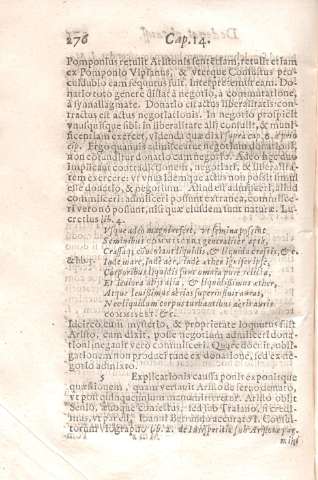 276 Cap. 14.
Pomponius retulit Aristonis sententiam, retulit et iam
ex Pomponio Vlpianus, & vterque Consultus pro-
culdubio eam sequutus fuit. Interpretemur eam. Do-
natio toto genere distat à negotio, à commercio,
à synallagmate. Donatio est actus liberalitatis: con-
tractus est actus negotiationis. In negotio prospicit
vnusquisque sibi. In liberalitate alij consulit, & mu-
nificentiam exercet,
Ergo quamuis admisceatur negotio donationis,
non confunditur donatio cum negotio. Adeo hęc duo
implicant contradictionem, negotiari, & liberalita-
tem exercere vt vnus idemque actus non possit simul
esse donatio, & negotium. Aliud est admisceri, aliud
commisceri: admisceri possunt extranea, commisce-
ri verò non possunt, nisi quæ eiusdem sunt naturæ. Lu-
cretius lib. 4.
Vsque adeo magni refert, vt semina possint
Seminibus COMMISCERI generaliter apte,
Crassaque conueniant liquidis, & liquida crassis, & c.
& lib. 5. Inde mare, inde aer, Inde æther ignifer ipse,
Corporibus liquidis sunt omnia pura relicta,
Et leuiora alijs alia, & liquidissimus æther,
Atque leuissimus aerias super influit auras,
Nec liquidum corpus turbantibus aeris auris
COMMISCET, & c.
Idcirco cum mysterio, & proprietate loquutus fuit
Aristo, cum dixit, posse negotium admisceri donati-
tioni; negauit verò commisceri. Quare docuit, obli-
gationem non produci tunc ex donatione, sed ex ne-
gotio admixto.
5 Explicationis caussa ponit exponitque
quæstionem, quam vertauit Aristo de seruo donato,
vt post quinquennium manumitteretur. Aristo obijt
Senio, morbisque confectus, sed sub Traiano, ni credi-
mus, vt par est, Ioanni Bertrando accurato I. Consul-
torum Viographo lib. 2. de Iurisperitis sub Aristone pag.
mihi